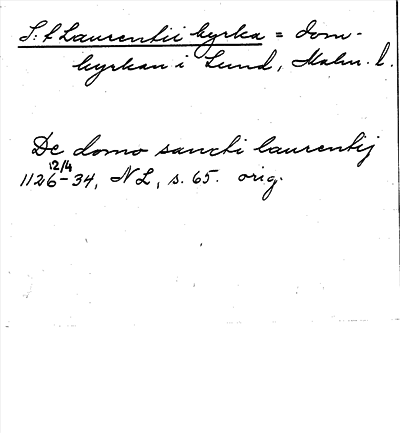 S:t Laurentii kyrka = dom-
kyrkan i Lund, Malm. l.
De domo sancti laurentij
12/4
1126-34, NL, s. 65. orig.